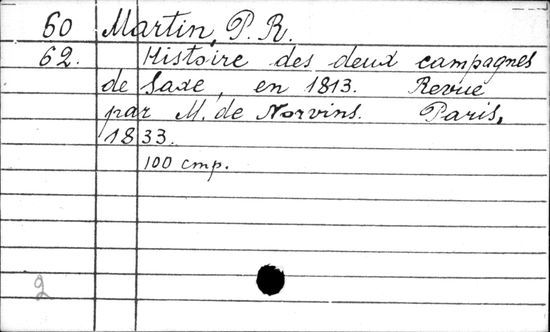 60 Martin, P. R.
62. Histoire des deux campagnes
de Saxe, en 1813. Revue
par M. de Norvins. Paris,
1833.
100 стр.
2